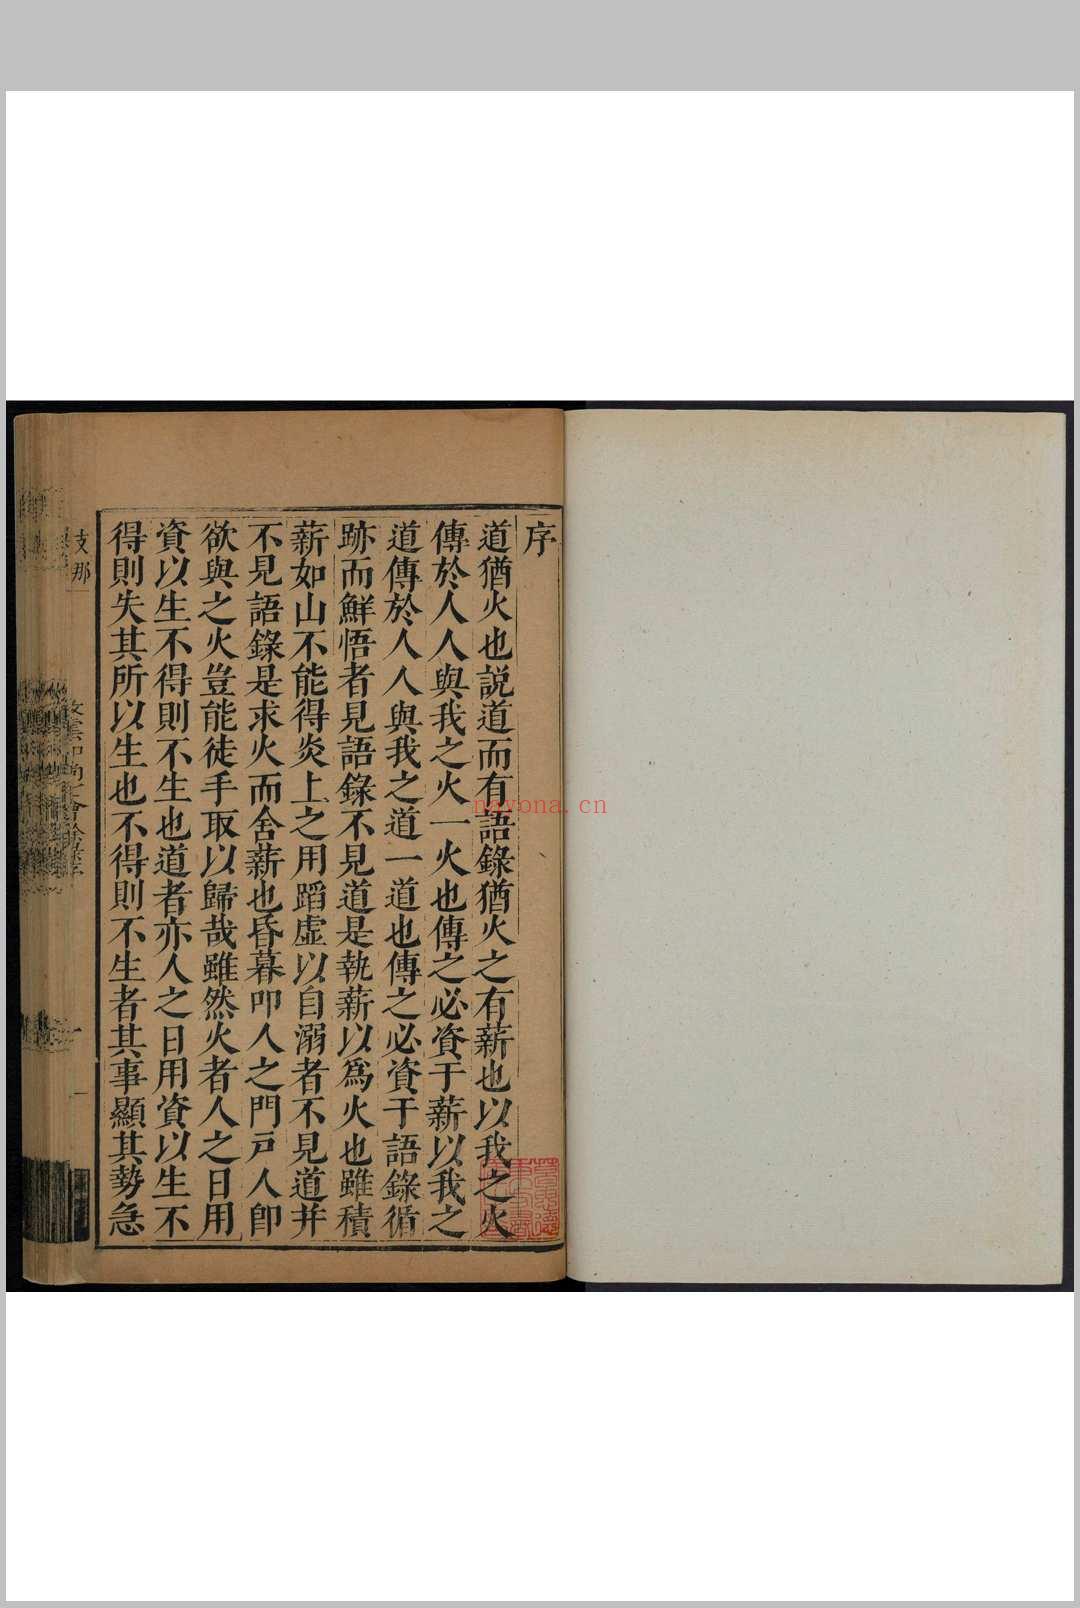 序
道猶火也説道而有語錄猶火之有薪也以我之火
傳於人人與我之火一火也傳之必資于薪以我之
道傳於人人與我之道一道也傳之必資于語錄循
跡而鮮悟者見語錄不見道是執薪以爲火也雖積
薪如山不能得炎上之用蹈虛以自溺者不見道并
不見語錄是求火而舍薪也昏暮叩人之門戸人卽
欲與之火豈能徒手取以歸哉雖然火者人之日用
資以生不得則不生也道者亦人之日用資以生不
得則失其所以生也不得則不生者其事顯其勢急
支那
一
nayona.cn